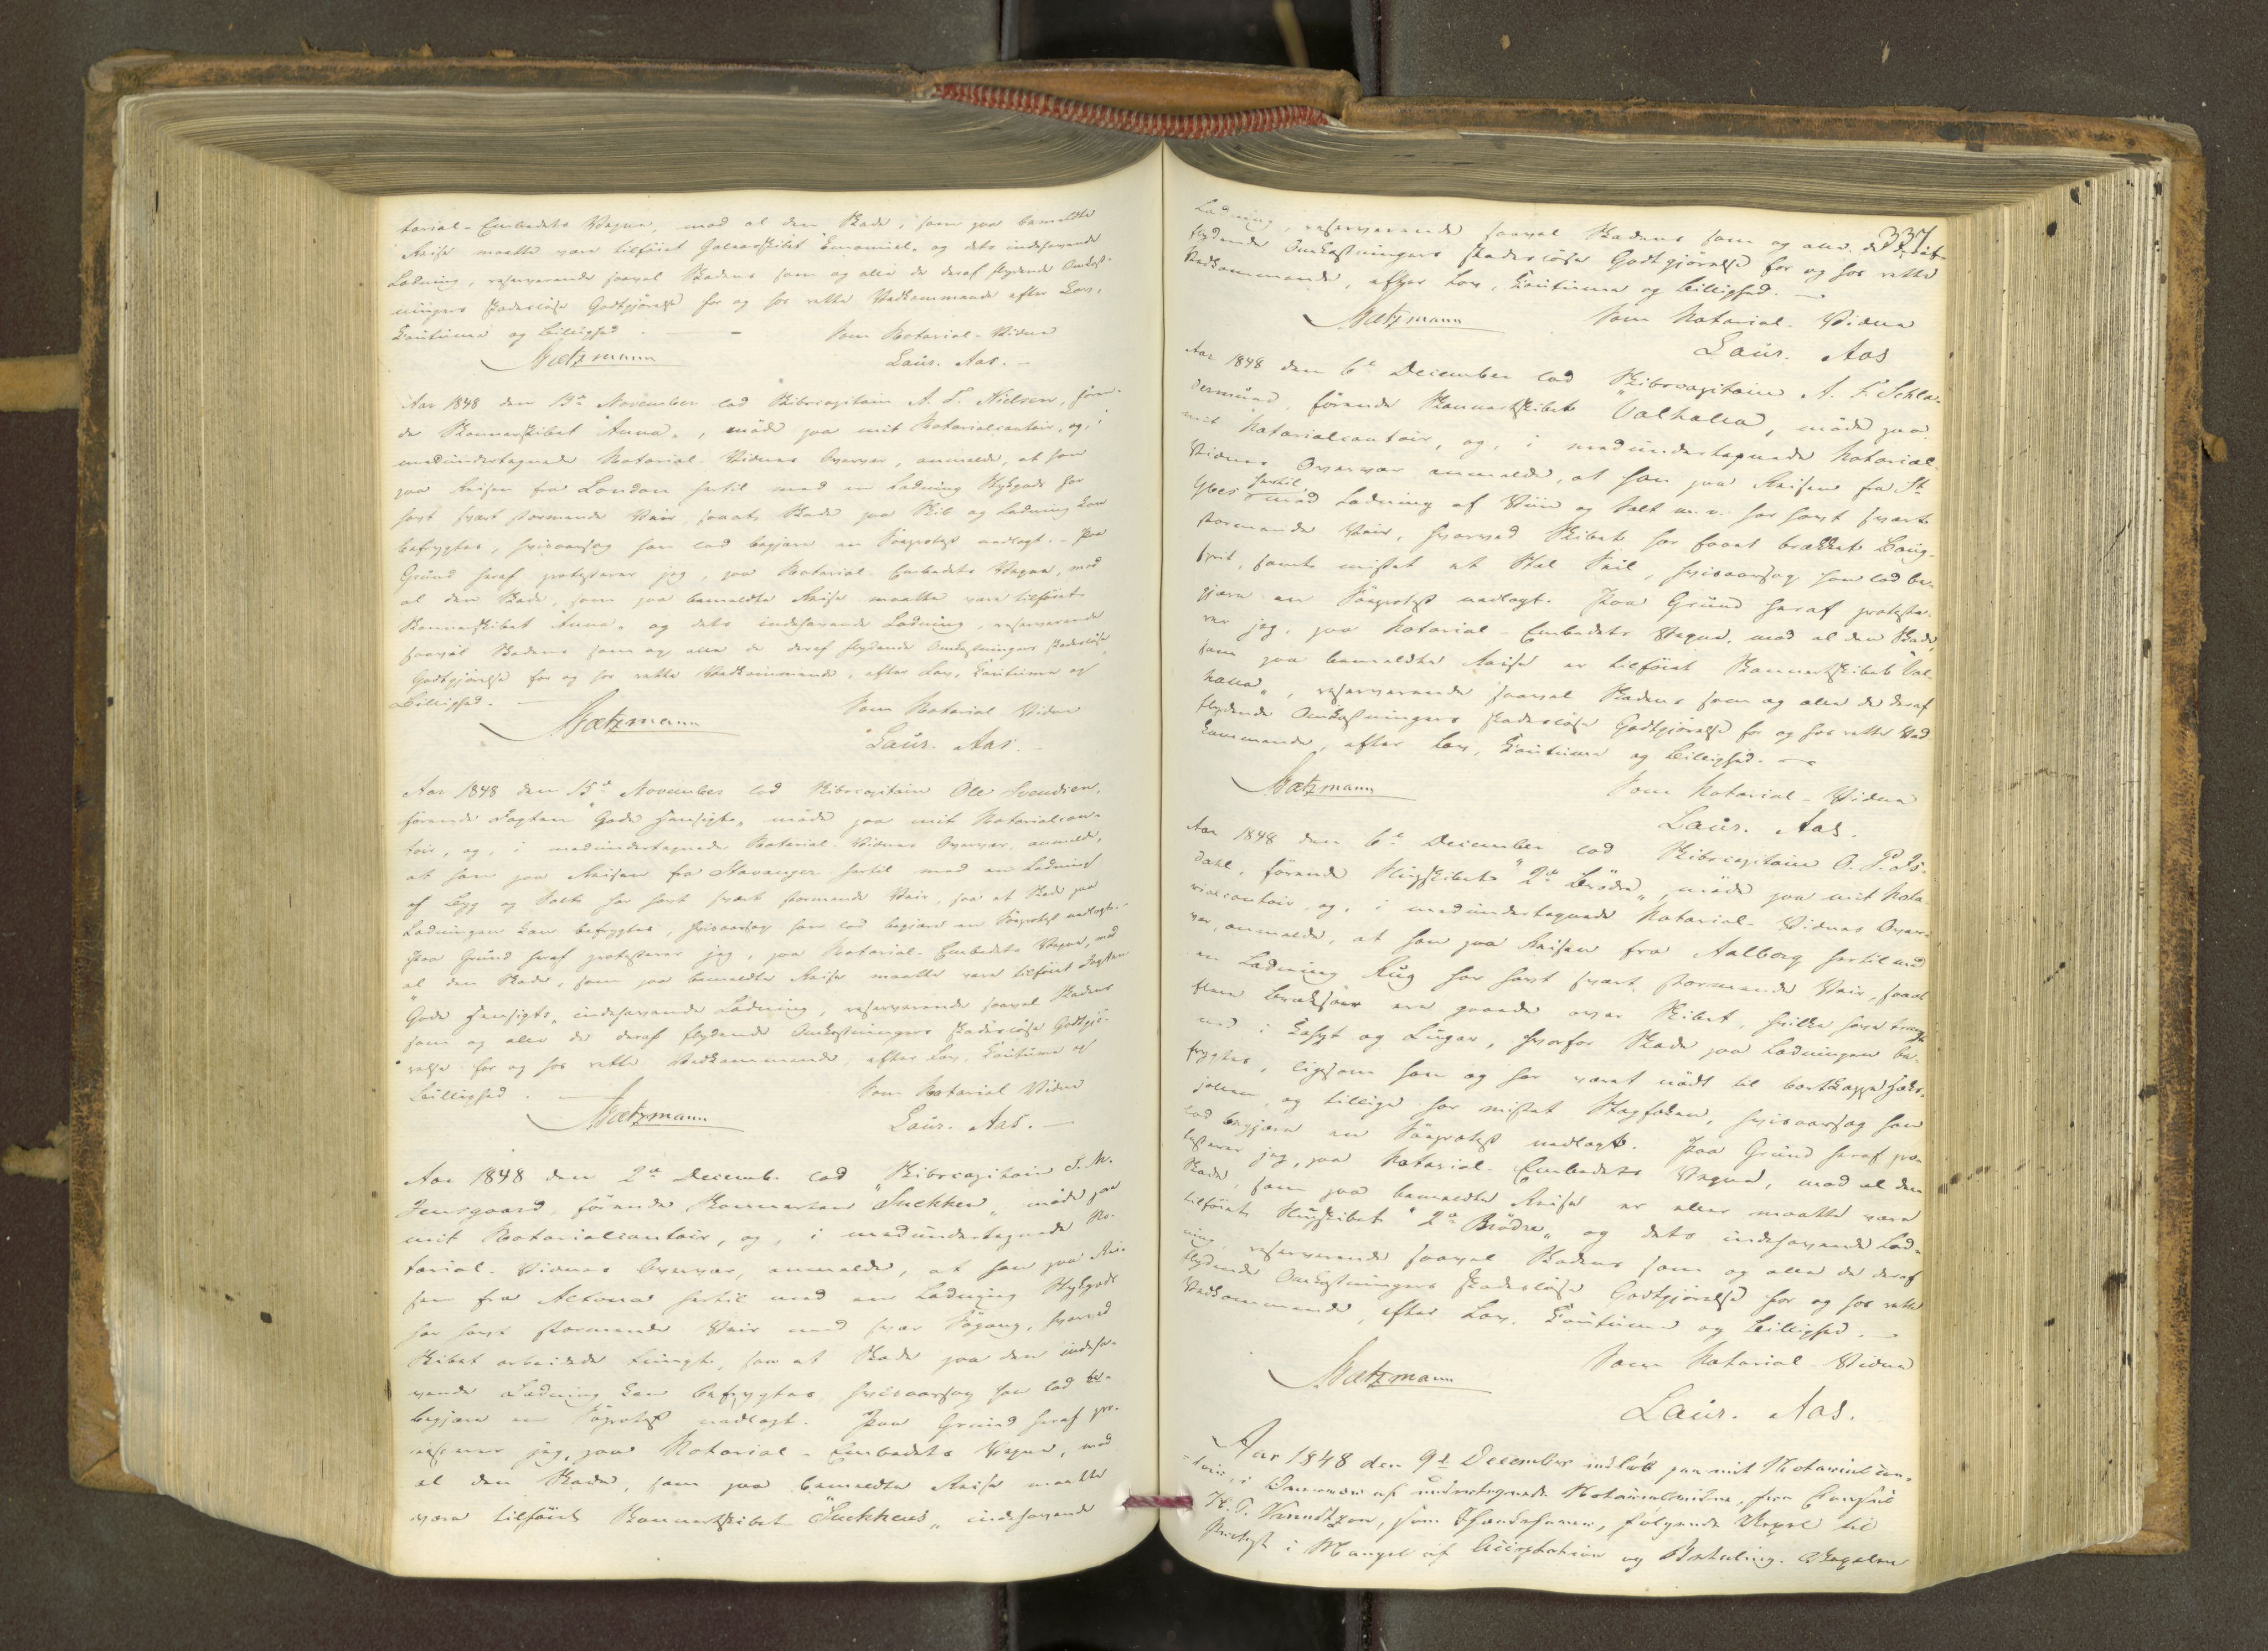 torial-Embedets Vegne, mod al den Skade, som paa bemeldte
Reise maatte være tilföiet Galeasskibet "Emanuel" og dets indehavende
Ladning, reserverende saavel Skadens som og alle de deraf flydende Omkost-
ningers skadeslöse Godtgjörelse for og hos rette Vedkommende efter Lov,
Coutume og Billighed. — Som Notorial-Vidne
Mætzmann Laur. Aas. —
Aar 1848 den 15de November lod Skibscapitain A. T. Nielsen, fören-
de Skonnertskibet "Anna", möde paa mit Notorialcontoir, og, i
medundertegnede Notorial-Vidnes Overvær, anmelde, at han
paa Reisen fra London hertil med en Ladning Stykgods har
havt svært stormende Veir, saaat Skade paa Skib og Ladning kan
befrygtes, hvisaarsag han lod begjære en Söeprotest nedlagt. – Paa
Grund heraf protesterer jeg, paa Notorial-Embedets Vegne, mod
al den Skade, som paa bemeldte Reise maatte være tilföiet
Skonnertskibet "Anna" og dets indehavende Ladning, reserverende
saavel Skadens som og alle de deraf flydende Omkostningers skadeslöse
Godtgjörelse for og hos rette Vedkommende, efter Lov, Coutume og
Billighed. — Som Notorial Vidne
Mætzmann Laur. Aas. —
Aar 1848 den 15de November lod Skibscapitain Ole Svendsen,
förende Jagten "Gode Hensigt" möde paa mit Notorialcon-
toir, og, i medundertegnede Notorial-Vidnes Overvær, anmelde,
at han paa Reisen fra Stavanger hertil med en Ladning
af Byg og Salt har havt svært stormende Veir, saa at Skade paa
Ladningen kan befrygtes, hvisaarsag han lod begjære en Söeprotest nedlagt. –
Paa Grund heraf protesterer jeg, paa Notorial-Embedets Vegne, mod
al den Skade, som paa bemeldte Reise maatte være tilföiet Jagten
"Gode Hensigts" indehavende Ladning, reserverende saavel Skadens
som og alle de deraf flydende Omkostningers skadeslöse Godtgjö-
relse for og hos rette Vedkommende, efter Lov, Coutume og
Billighed. — Som Notorial Vidne
Mætzmann Laur. Aas. —
Aar 1848 den 2de Decemb. lod Skibscapitain J. M.
Jensgaard, förende Skonnerten "Suckken" möde paa
mit Notorialcontoir, og, i medundertegnede No-
torial-Vidnes Overvær, anmelde, at han paa Rei-
sen fra Altona hertil med en Ladning Stykgods
har havt stormende Veir med svær Sögang, hvorved
Skibet arbeidede tungt, saa at Skade paa den indeha-
vende Ladning kan befrygtes, hvisaarsag han lod be-
begjære en Söprotest nedlagt. Paa Grund heraf pro-
testerer jeg, paa Notorial-Embedets Vegne, mod
al den Skade, som paa bemeldte Reise maatte
være tilföiet Skonnertskibet "Suckkens" indehavende
337
Ladning, reserverende saavel Skadens som og alle de deraf
flydende Omkostningers skadeslöse Godtgjörelse for og hos rette
Vedkommende, efter Lov, Coutume og Billighed. —
Mætzmann Som Notorial-Vidne
Laur. Aas
Aar 1848 den 6te December lod Skibscapitain A. F. Schla-
dermund, förende Skonnertskibet "Valhalla", möde paa
mit Notorialcontoir, og, i medundertegnede Notorial-
Vidnes Overvær anmelde, at han paa Reisen fra St
Ybes hertil med Ladning af Viin og Salt m. v. har havt svært
stormende Veir, hvorved Skibet har faaet brækket Boug-
sprit, samt mistet et Stel Seil, hvisaarsag han lod be-
gjære en Söeprotest nedlagt. Paa Grund heraf proteste-
rer jeg, paa Notorial-Embedets Vegne, mod al den Skade,
som paa bemeldte Reise er tilföiet Skonnertskibet "Val-
halla", reserverende saavel Skadens som og alle de deraf
flydende Omkostningers skadeslöse Godtgjörelse for og hos rette Ved
kommende, efter Lov, Coutume og Billighed. —
Mætzmann Som Notorial-Vidne
Laur. Aas.
Aar 1848 den 6te December lod Skibscapitain O. P. Is-
dahl, förende Slupskibet "2de Brödre", möde paa mit Noto-
rialcontoir, og, i medundertegnede Notorial-Vidnes Over-
vær, anmelde, at han paa Reisen fra Aalborg hertil med
en Ladning Rug har havt svært, stormende Veir, saaat
flere Bræksöer ere gaaede over Skibet, hvilke have trængt
ned i Kahyt og Lugar, hvorfor Skade paa Ladningen be-
frygtes, ligesom han og har været nödt til bortkappe Hæks-
jollen, og tillige har mistet Stagfokken, hvisaarsag han
lod begjære en Söeprotest nedlagt. Paa Grund heraf pro-
testerer jeg, paa Notorial-Embedets Vegne, mod al den
Skade, som paa bemeldte Reise er eller maatte være
tilföiet Slupskibet "2de Brödre" og dets indehavende Lad-
ning, reserverende saavel Skadens som og alle de deraf
flydende Omkostningers skadeslöse Godtgjörelse for og hos rette
Vedkommende, efter Lov, Coutume og Billighed. —
Mætzmann Som Notorial-Vidne
Laur. Aas.
Aar 1848 den 9de December indlöb paa mit Notorialcon-
toir, i Overvær af undertegnede Notorialvidne, fra Consul
H. T. Knudtzon, som Ihændehaver, følgende Vexel til
Protest i Mangel af Acceptation og Betaling. Vexelen